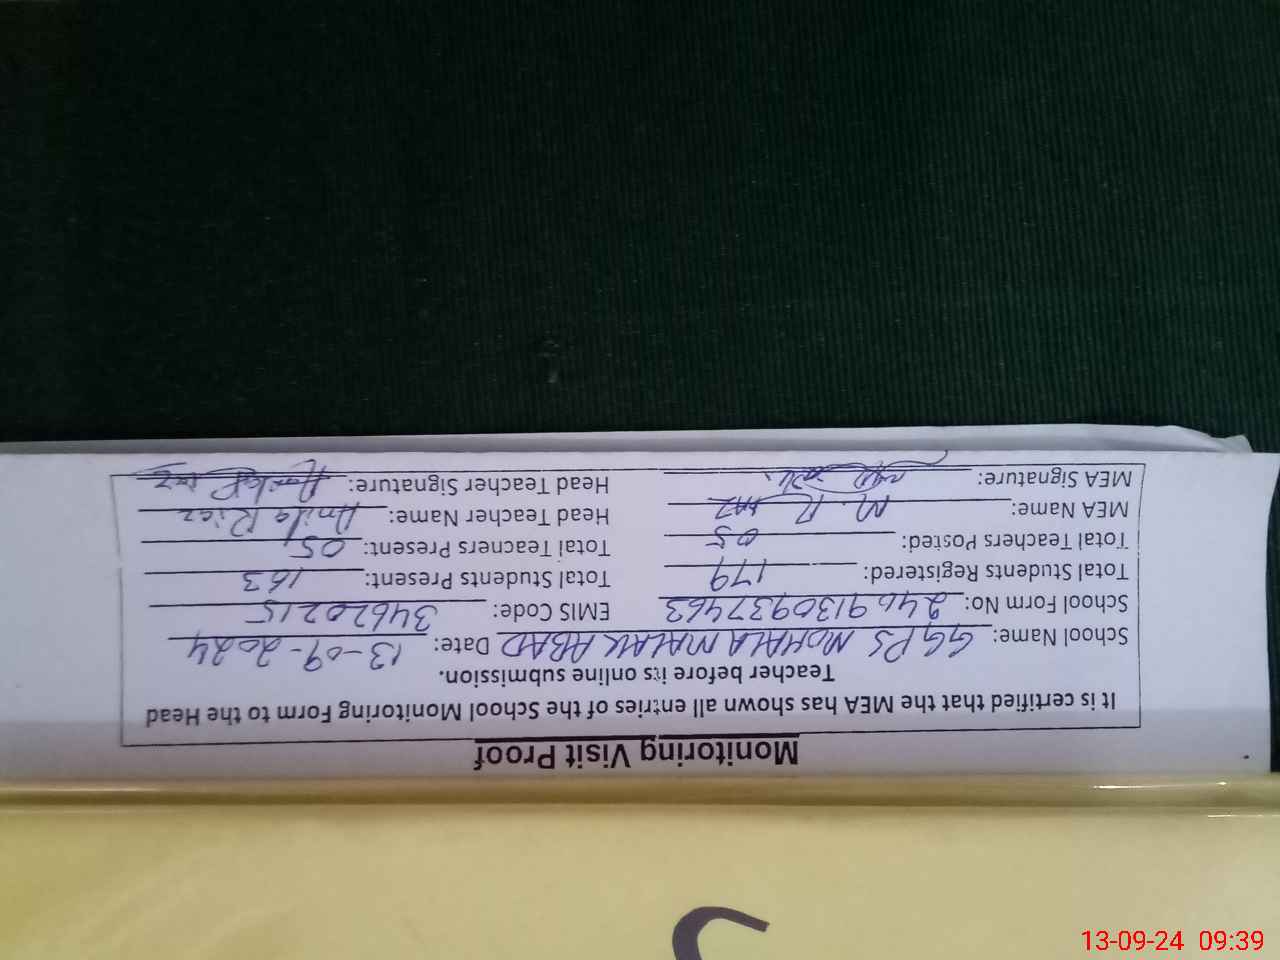 Monitoring Visit Proof
It is certified that the MEA has shown all entries of the School Monitoring Form to the Head
Teacher before its online submission.
School Name: GGPS MOHALA MALAK ABAD Date: 13-09-2024
School Form No: 2469130937463 EMIS Code: 34620215
Total Students Registered: 179 Total Students Present: 163
Total Teachers Posted: 05 Total Teachers Present: 05
MEA Name: M. Head Teacher Name: Anila Riaz
MEA Signature: Head Teacher Signature: Anila Riaz
13-09-24 09:39